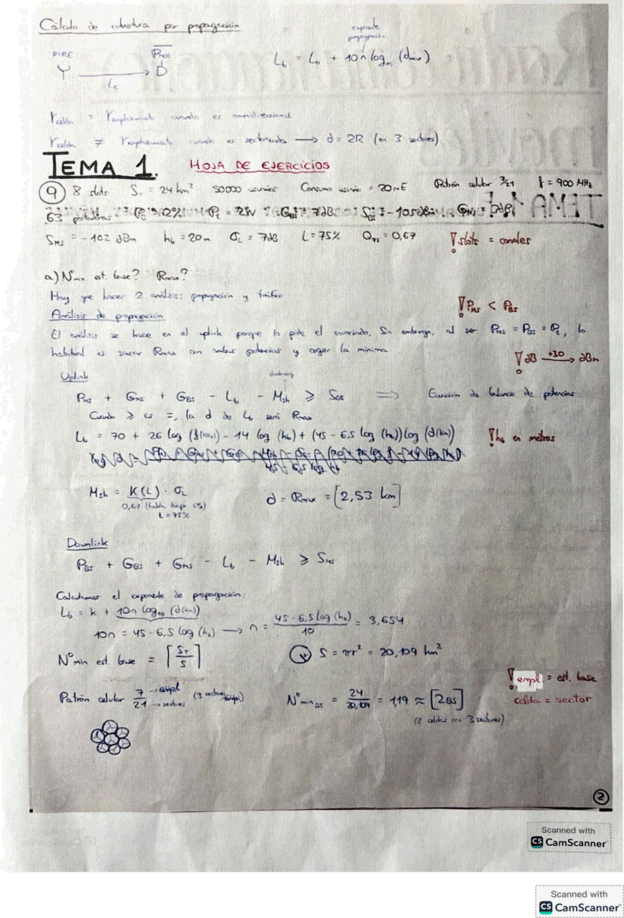 Cálculo de cobertura por propagación
exponente
propagación
PIRE
Lb = Lo + 10n log10 (dmax)
Lb
rcelda = remplazamiento cuando es omnidireccional
rcelda ≠ remplazamiento cuando es sectorizado → d = 2R (en 3 sectores)
TEMA 1. HOJA DE EJERCICIOS
9 8 slots ST = 24 km² 50000 usuarios Consumo usuario = 20mE Patrón celular f = 900 MHz
63 GBS = 7dB
SMS = -102 dBm hb = 20m σL = 7dB L = 75% = 0,67
! slots = canales
a) Nmin est. base? Rmax?
Hay que hacer 2 análisis: propagación y tráfico
! PMS < PBS
Análisis de propagación
El análisis se hace en el uplink porque lo pide el enunciado. Sin embargo, al ser PMS = PBS = Pt, lo
habitual es sacar Rmax con ambas potencias y coger la mínima.
! dB +30 → dBm
Uplink
PMS + GMS + GBS - Lb - Msh ≥ SBS ⇒ Ecuación de balance de potencias
Cuando ≥ es =, la d de Lb será Rmax
Lb = 70 + 26 log (f(MHz)) - 14 log (hb) + (45 - 6,5 log (hb)) log (d(km))
! hb en metros
Msh = K(L) · σL
0,67
L = 75%
d = Rmax = [2,53 km]
Downlink
PBS + GBS + GMS - Lb - Msh ≥ SMS
Calculamos el exponente de propagación:
Lb = k + 10n log10 (d(km))
10n = 45 - 6,5 log (hb) → n = 45 - 6,5 log (hb) / 10 = 3,654
Nº min est. base = ⌈ST / S⌉
S = πr² = 20,109 km²
! empl = est. base
celda = sector
Patrón celular 7 → empl / 21 → sectores
Nº min BS = 24 / 20,109 = 1,19 ≈ [2 BS]
(2 celdas con 3 sectores)
2
Scanned with
CS CamScanner
Scanned with
CS CamScanner